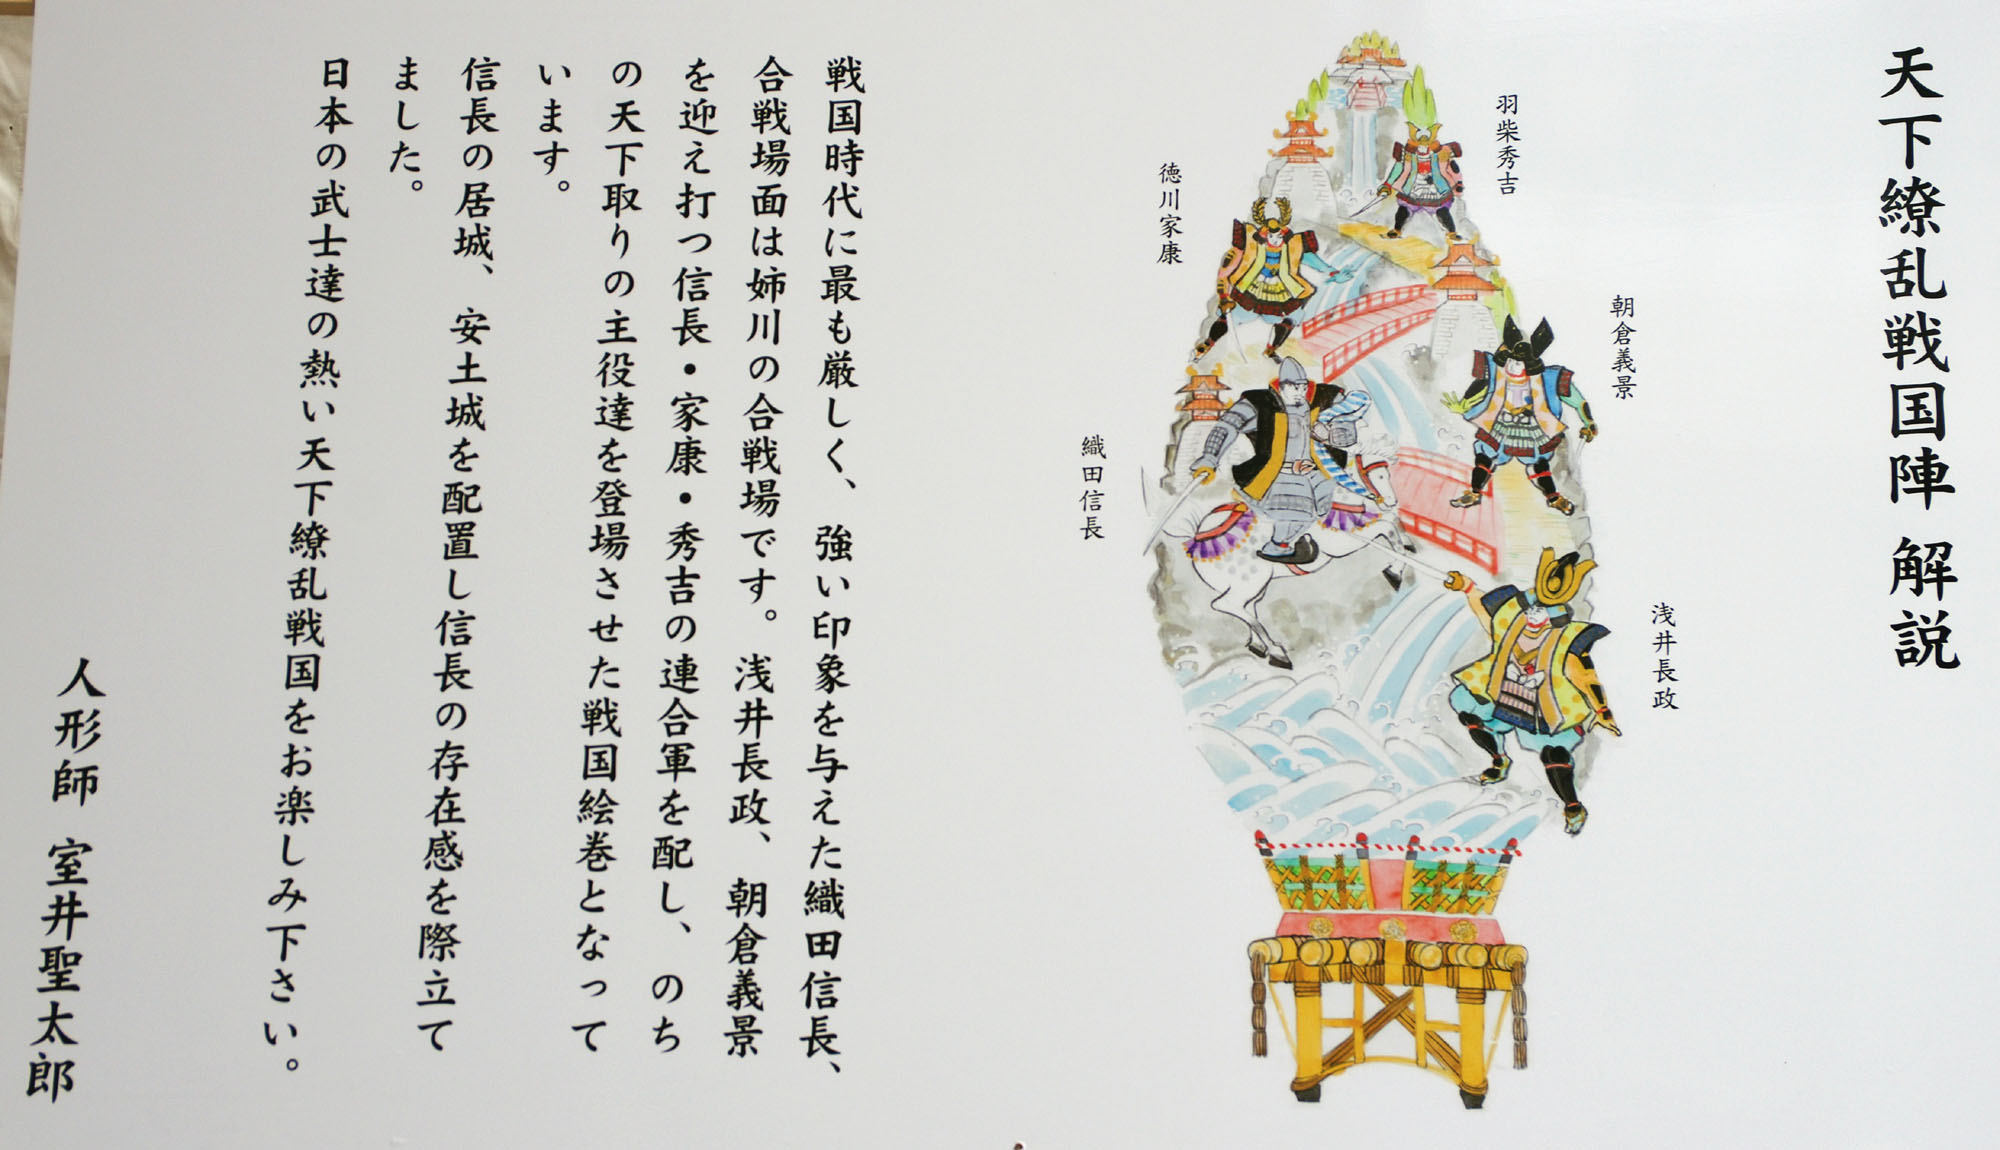 天下繚乱戦国陣 解説
羽柴秀吉
徳川家康
朝倉義景
織田信長
浅井長政
戦国時代に最も厳しく、強い印象を与えた織田信長、
合戦場面は姉川の合戦場です。浅井長政、朝倉義景
を迎え打つ信長・家康・秀吉の連合軍を配し、のち
の天下取りの主役達を登場させた戦国絵巻となって
います。
信長の居城、安土城を配置し信長の存在感を際立て
ました。
日本の武士達の熱い天下繚乱戦国をお楽しみ下さい。
人形師 室井聖太郎